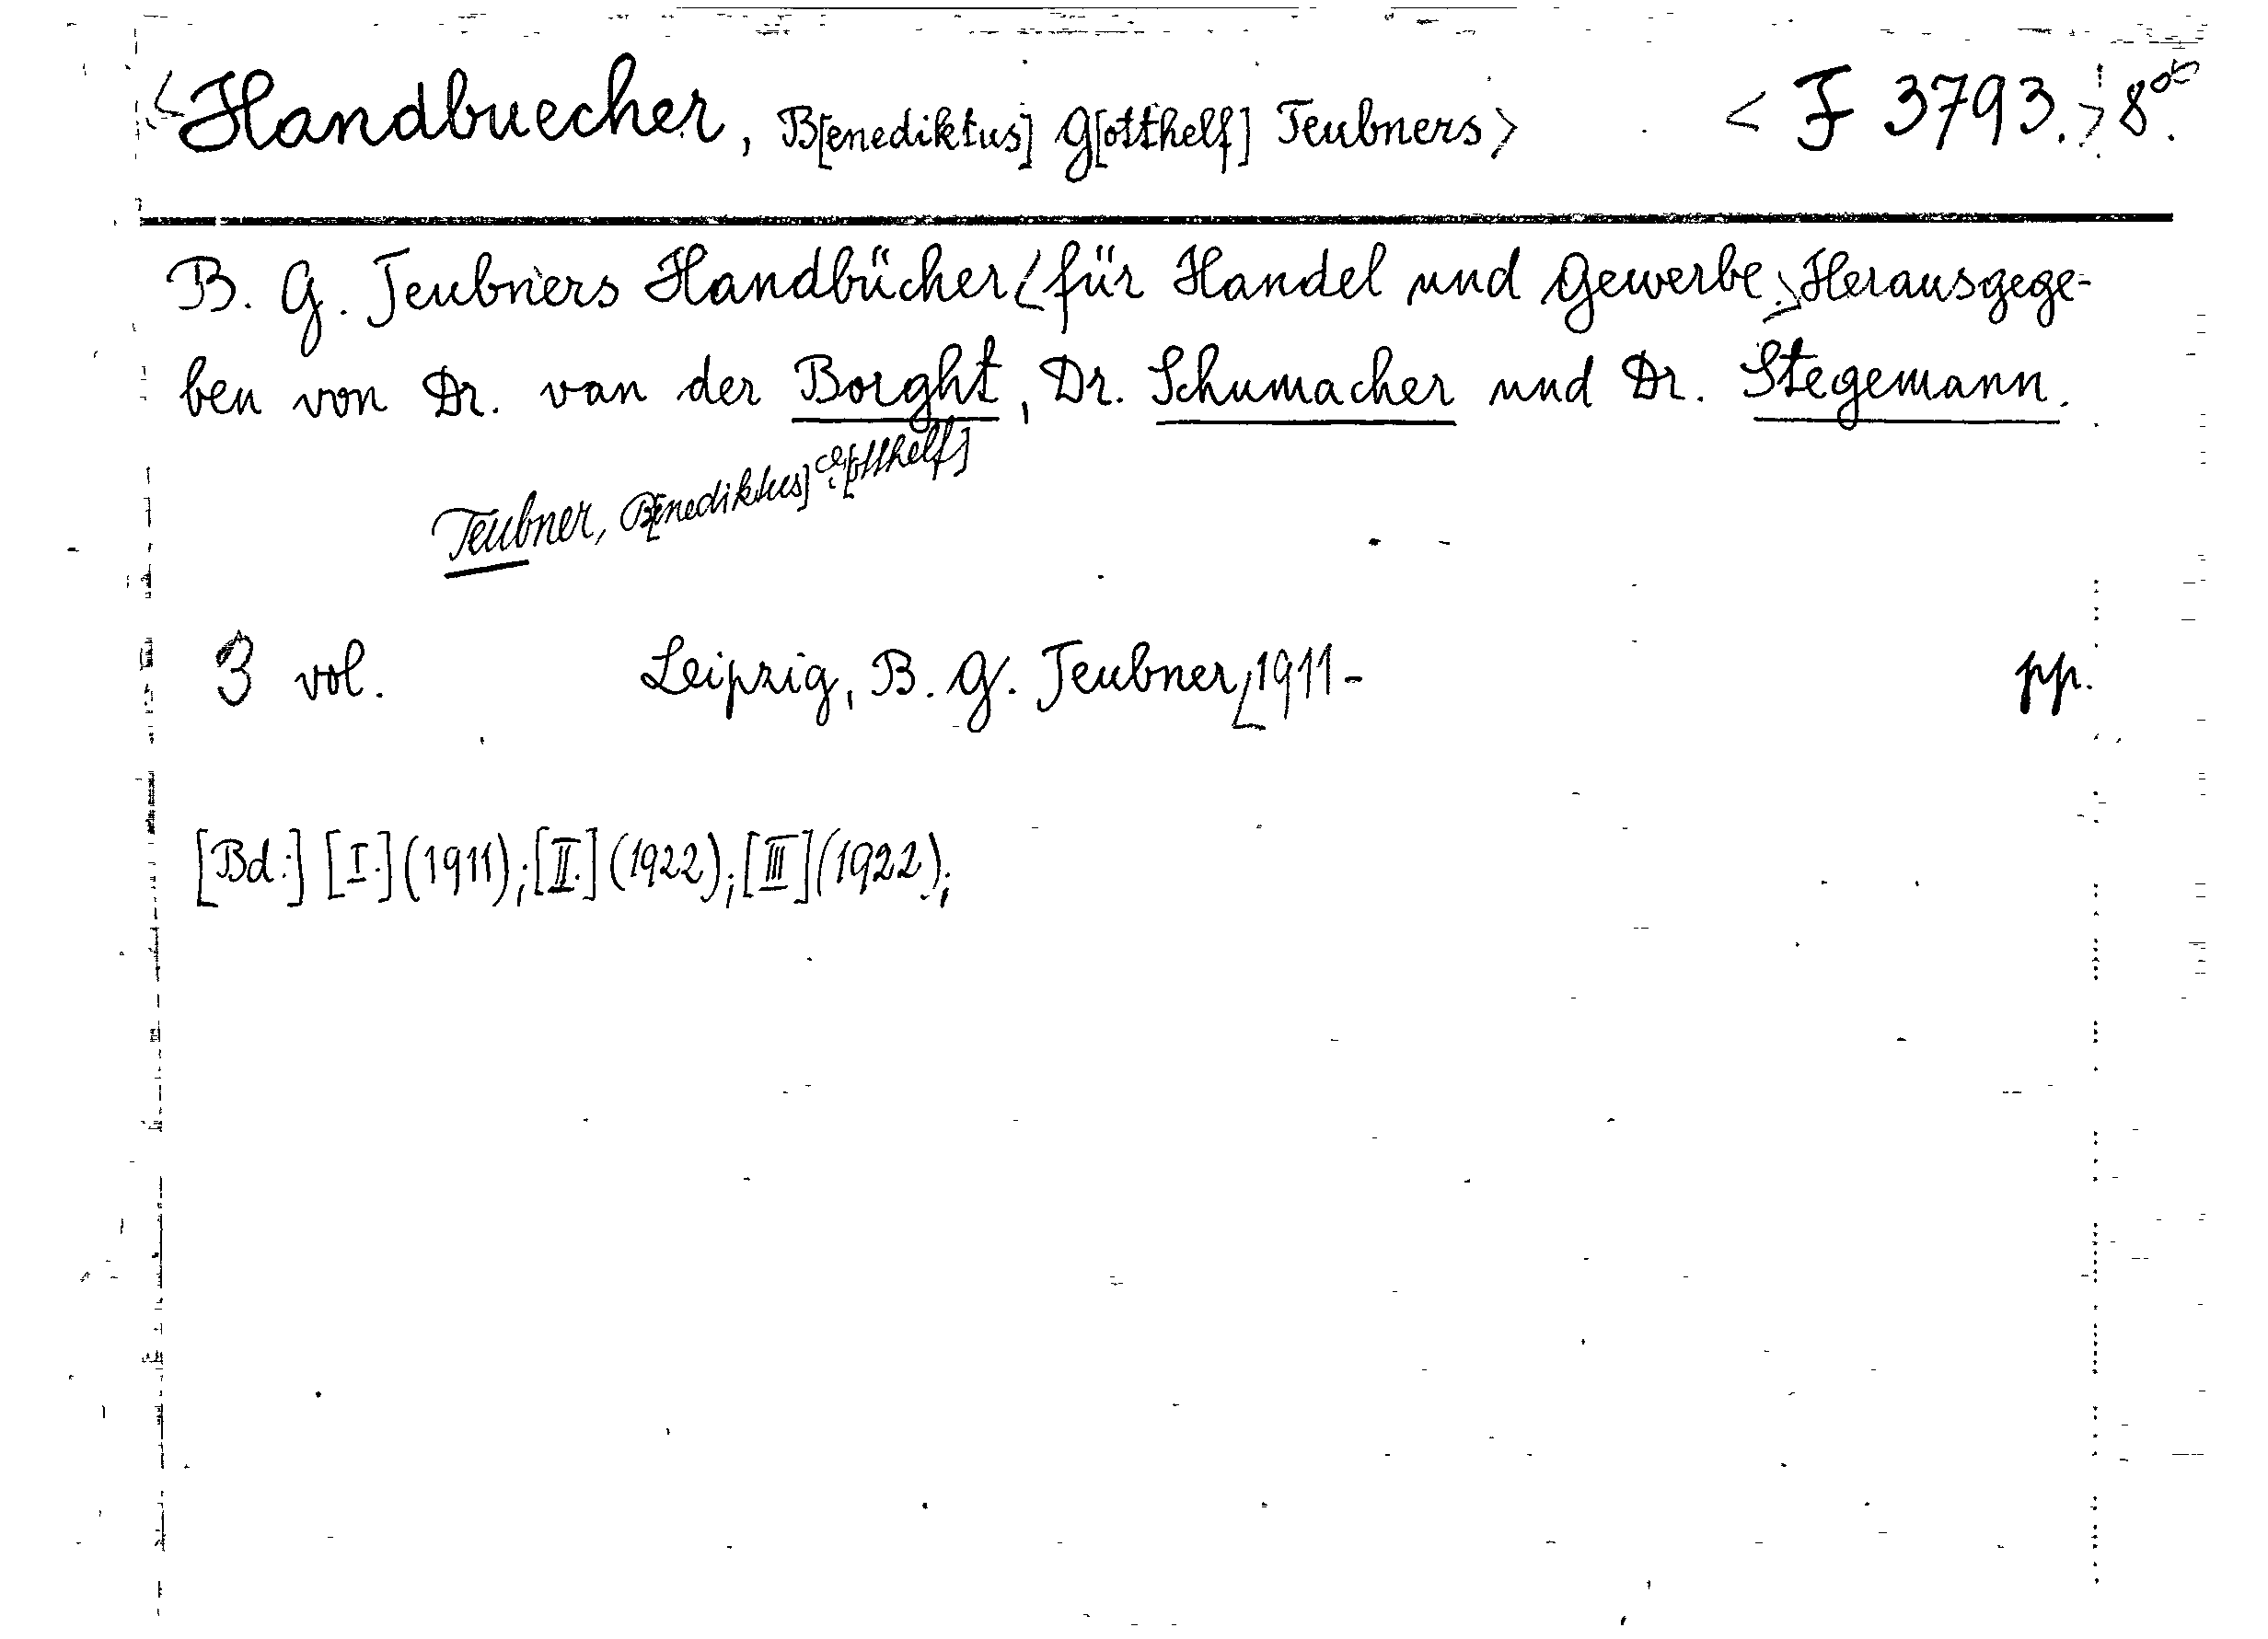 <Handbuecher, B[enediktus] G[otthelf] Teubners> <F 3793.> 8°
B. G. Teubners Handbücher <für Handel und Gewerbe.> Herausgege-
ben von Dr. van der Borght, Dr. Schumacher und Dr. Stegemann.
Teubner, B[enediktus] G[otthelf]
3 vol. Leipzig, B. G. Teubner, 1911- pp.
[Bd:] [I.] (1911); [II.] (1922); [III] (1922);